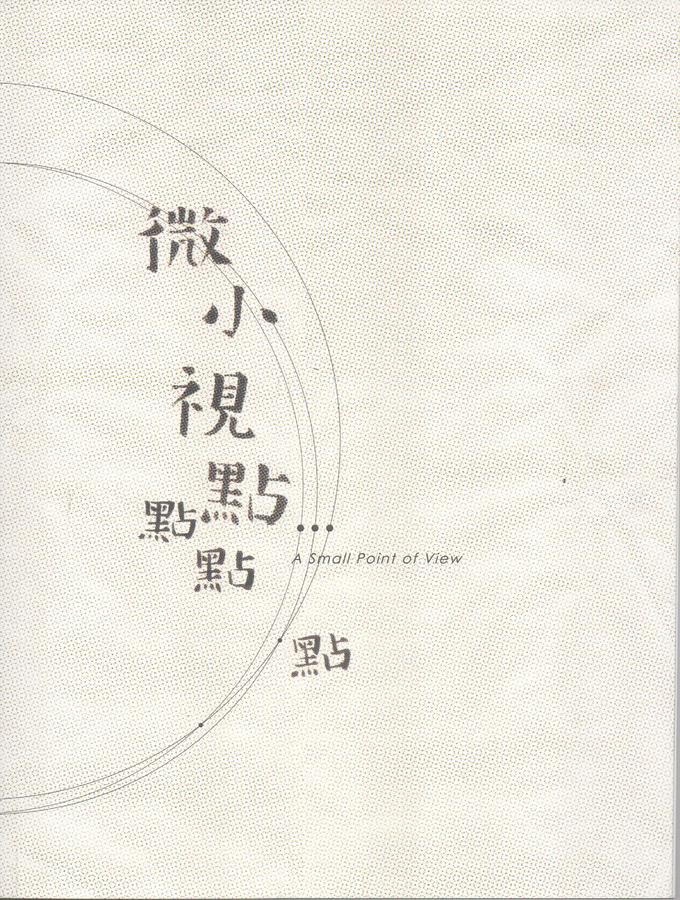 微小視點
點
點
點
A Small Point of View